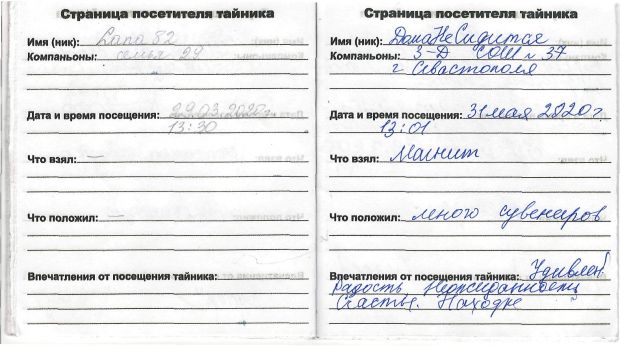 Страница посетителя тайника
Имя (ник): Lana 82
Компаньоны: семья 29
Дата и время посещения: 29.03.2020г.
13:30
Что взял: —
Что положил: —
Впечатления от посещения тайника:
Страница посетителя тайника
Имя (ник): ДомаНеСидится
Компаньоны: 3-Д СОШ № 37
г Севастополя
Дата и время посещения: 31 мая 2020 г.
13:01
Что взял: Магнит
Что положил: много сувениров
Впечатления от посещения тайника: Удивлен.
Радость.
Счастье. Находке